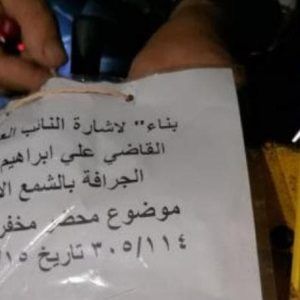 بناء" لاشارة النائب
القاضي علي ابراهيم
الجرافة بالشمع
موضوع محضر
٣٠٥/١١٤ تاريخ